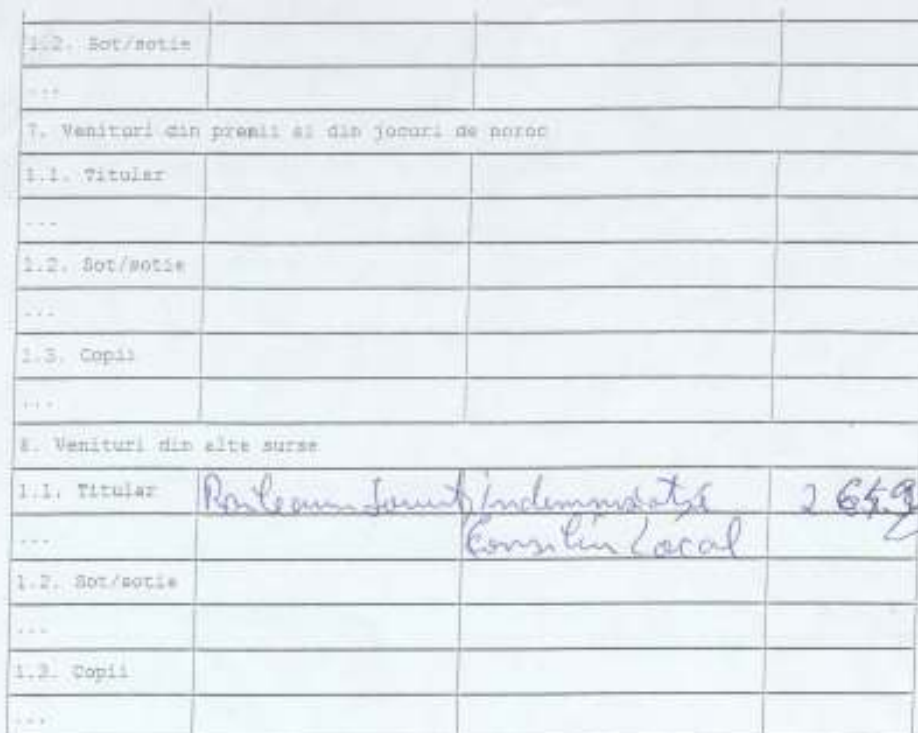 1.2. Sot/sotie
...
7. Venituri din premii si din jocuri de noroc
1.1. Titular
...
1.2. Sot/sotie
...
1.3. Copii
...
8. Venituri din alte surse
1.1. Titular indemnizatie
... Consiliu Local
1.2. Sot/sotie
...
1.3. Copii
...